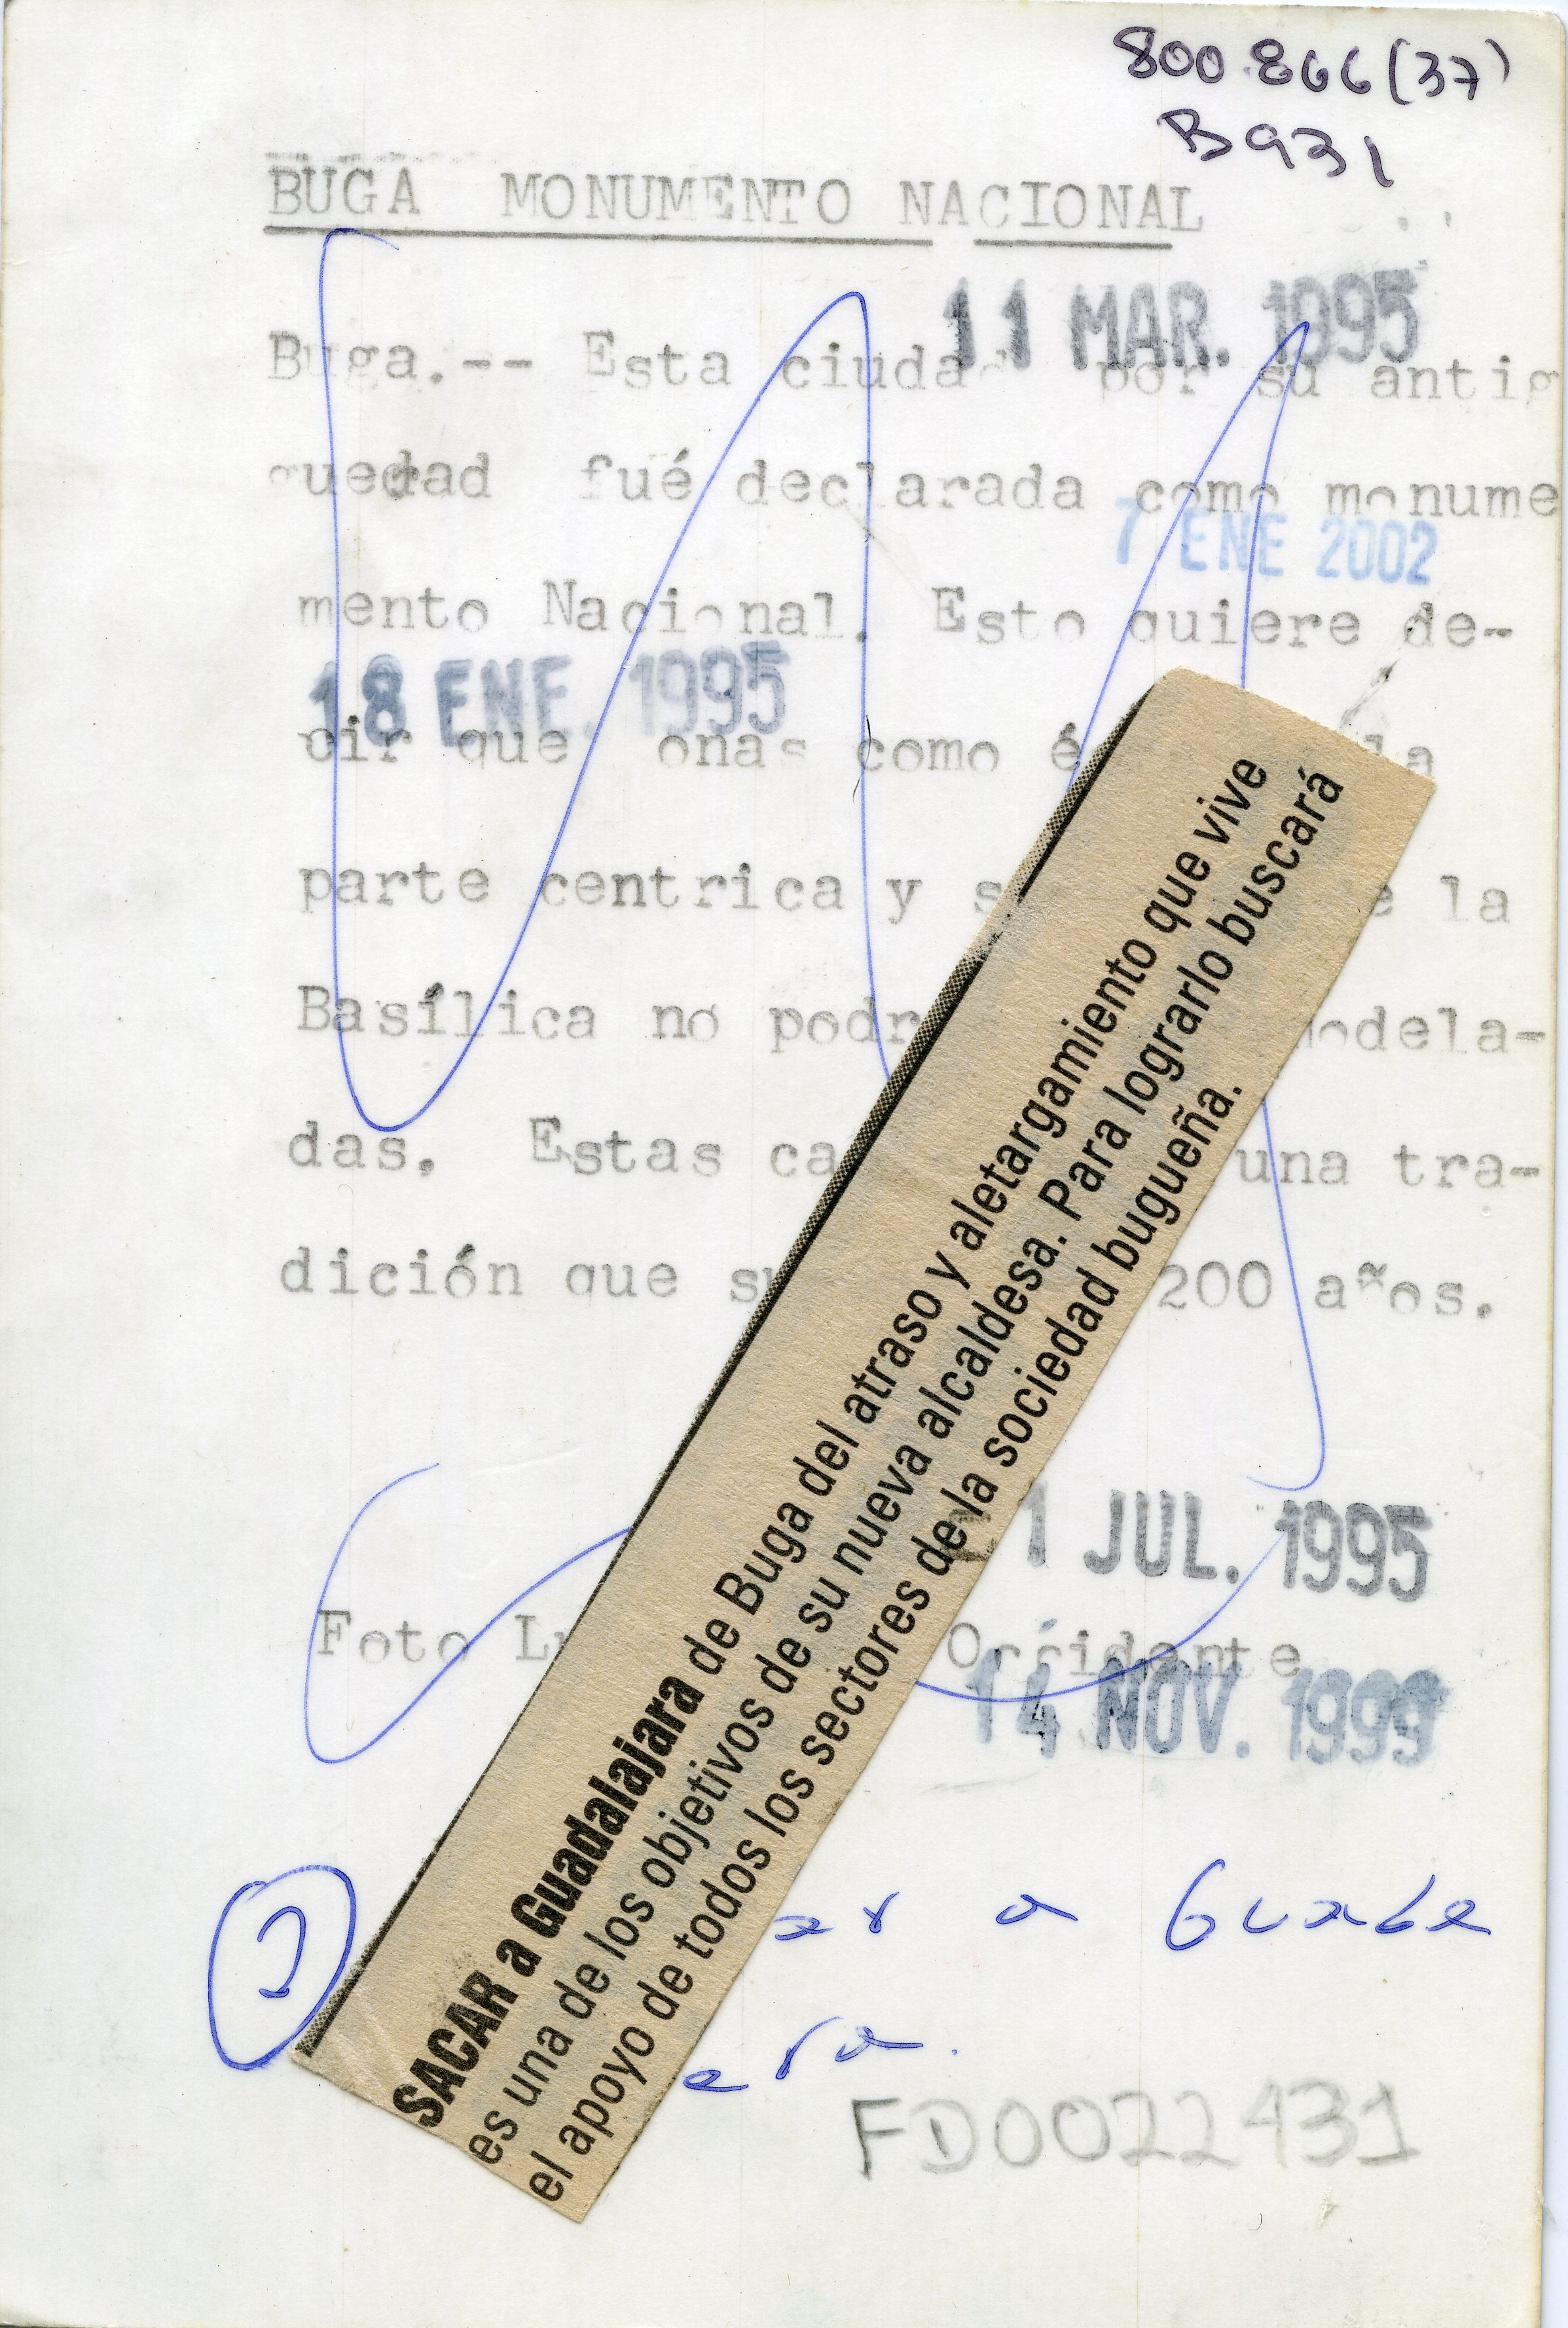 800.866(37)
B931
BUGA MONUMENTO NACIONAL
11 MAR. 1995
Buga.-- Esta ciudad por su antig
guedad fué declarada como monume
7 ENE 2002
mento Nacional. Esto quiere de-
18 ENE. 1995
cir que onas como la
parte centrica y la
Basílica no
das. Estas una tra-
dición que 200 años.
1 JUL. 1995
Foto Occidente
14 NOV. 1999
SACAR a Guadalajara de Buga del atraso y aletargamiento que vive
es una de los objetivos de su nueva alcaldesa. Para lograrlo buscará
el apoyo de todos los sectores de la sociedad bugueña.
a
FD0022431